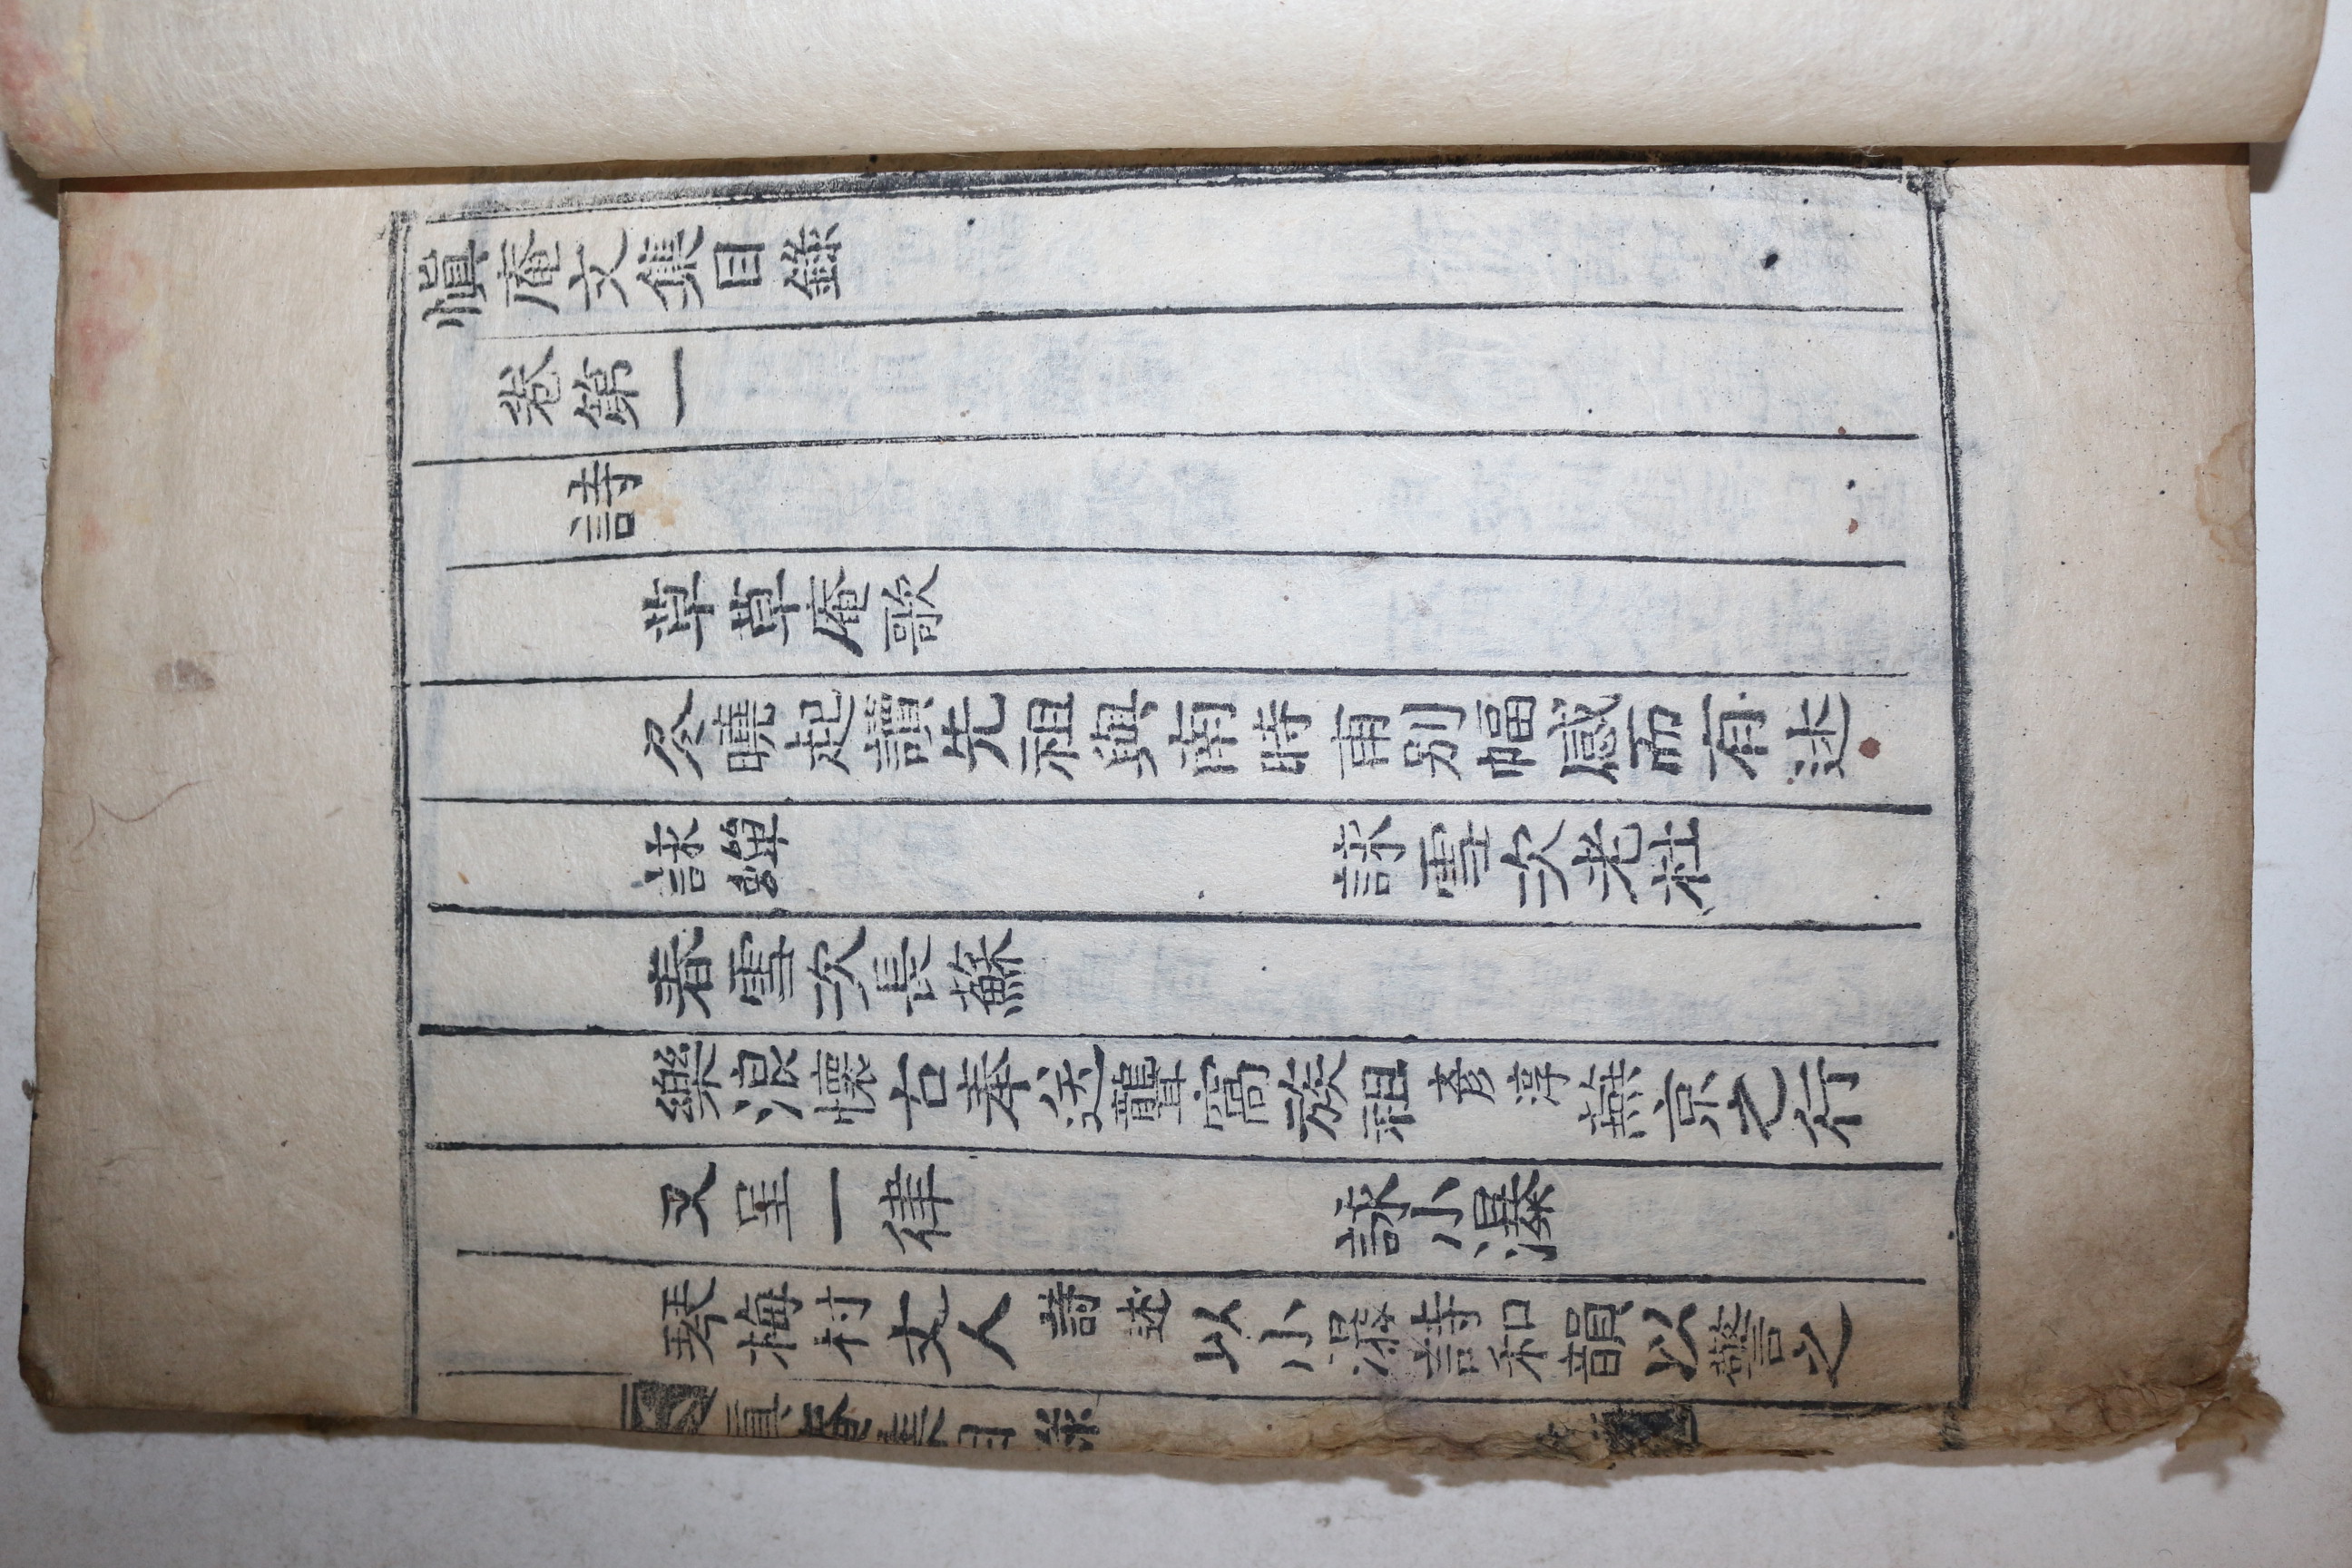 愼庵文集目錄
卷第一
詩
草草庵歌
冬曉起讀先祖與南時甫別幅感而有述
詠蟬 詠雪次老杜
春雪次長蘇
樂浪懷古奉送聾窩族祖彥淳蕪京之行
又呈一律 詠小瀑
琴梅村丈人詩述以小瀑詩和韻以警之
愼庵集目錄